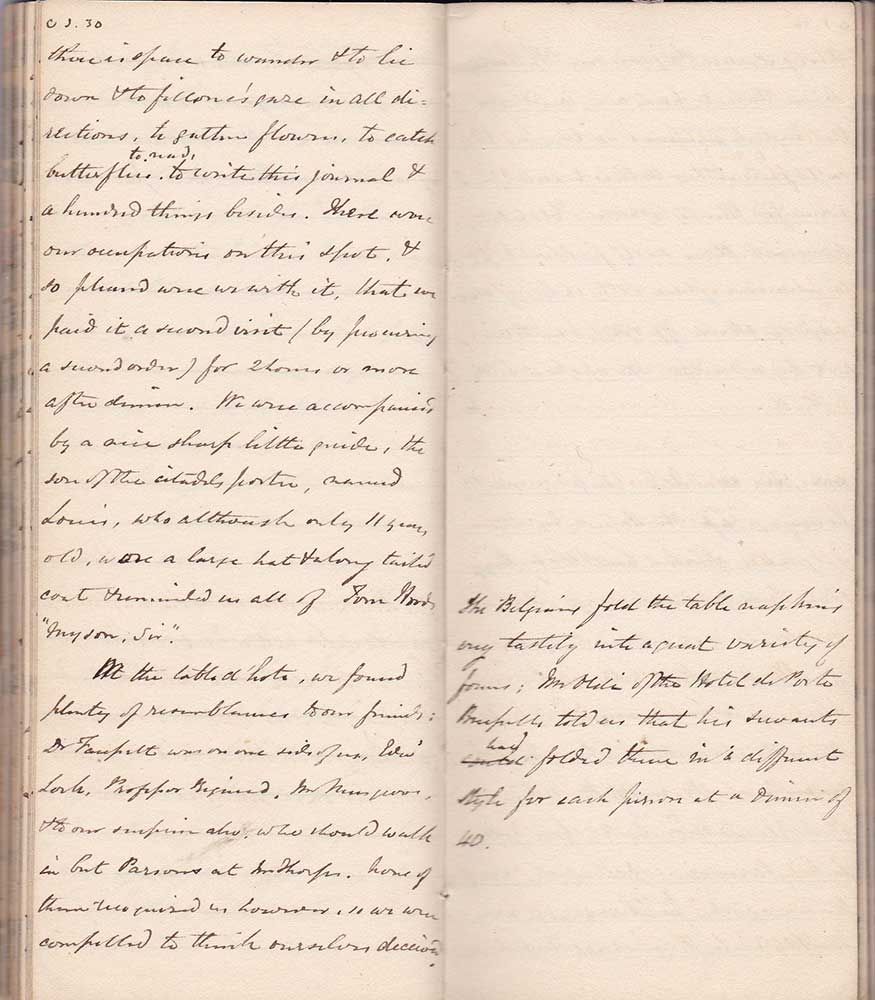 C J. 30
there is space to wander & to lie
down & to fill one's gaze in all di=
rections, to gather flowers, to catch
to read,
butterflies, to write this journal &
a hundred things besides. These were
our occupations on this spot, &
so pleased were we with it, that we
paid it a second visit (by procuring
a second order) for 2 hours or more
after dinner. We were accompanied
by a nice sharp little guide, the
son of the citadel porter, named
Louis, who although only 11 years
old, wore a large hat & a long tailed
coat & reminded us all of Tom
"My son, Sir".
At the table d'hote, we found
plenty of resemblances to our friends:
Dr was on one side of us, Edwd
Lock, Professor Mr
& to our surprise also, who should walk
in but Parsons at None of
them recognized us however, so we were
compelled to think ourselves deceived.
The Belgians fold the table napkins
very tastily into a great variety of
forms; Mr of the Hotel de Poste
Brussells told us that his servants
had
could folded them in a different
style for each person at a dinner of
40.